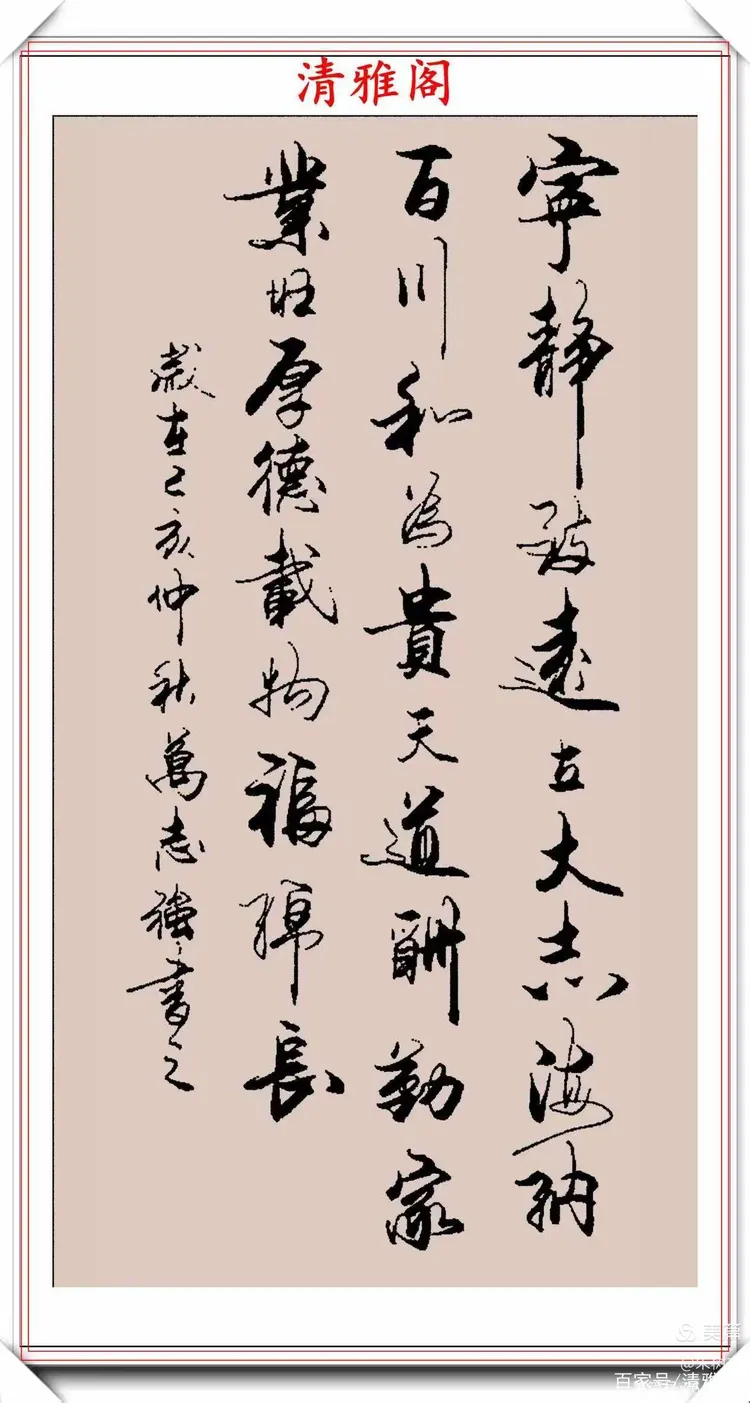 清雅阁
寧靜致遠立大志海納
百川和為貴天道酬勤家
業旺厚德載物福綿長
歲在己亥仲秋萬志強書之
百家号/清雅